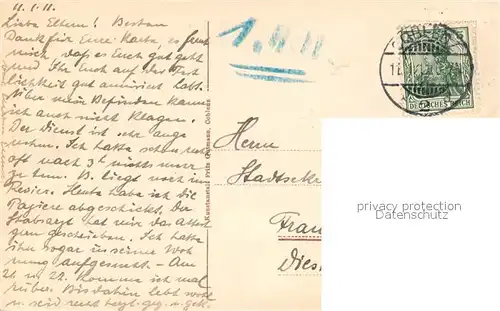 11.1.11.
Liebe Eltern! Besten
Dank für Eure Karte, es freut
mich, daß es Euch gut geht
und Ihr Euch auf der Fest
lichkeit gut amüsiert habt.
Über mein Befinden kann
ich auch nicht klagen.
Der Dienst ist sehr ange
nehm. Ich habe schon
oft nach 3 h nichts mehr
zu tun. B. liegt noch im
Revier. Heute habe ich die
Papiere abgeschickt. Der
Stabsarzt hat mir das Attest
geschrieben. Ich hatte
ihn sogar in seiner Woh
nung aufgesucht. - Am
21 u. 22. komme ich mal
rüber. Bis dahin lebt wohl
u. seid recht herzl. geg. u. gek.
Kunstanstalt Fritz Gutmann, Coblenz
1.1.11.
COBLENZ
DEUTSCHES REICH
Herrn
Stadtsekr
Fran
Dies
privacy protection
www.ansichtskarten-lexikon.de